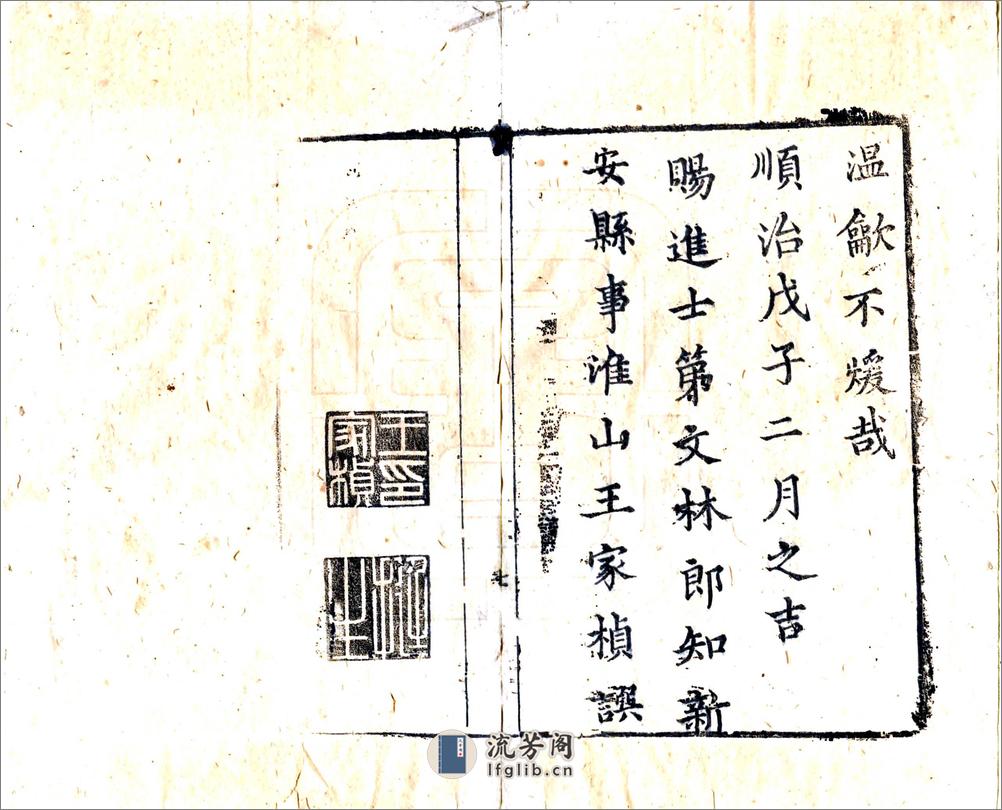 温龡不煖哉
順治戊子二月之吉
賜進士第文林郎知新
安縣事淮山王家楨譔
七
王印
家楨
流芳阁
lfglib.cn